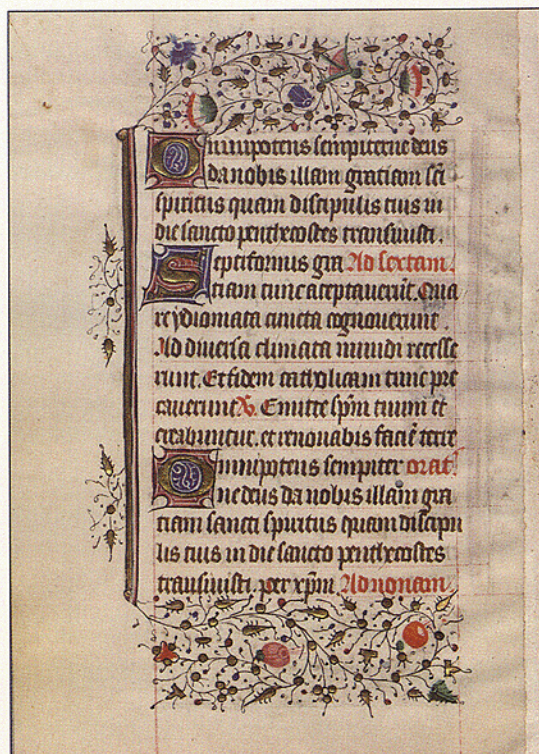 Omnipotens sempiterne deus
da nobis illam gratiam sci
spiritus quam discipulis tuis in
die sancto penthecostes transmisti.
Septiformis gra Ad sextam.
tiam tunc aceptaverut. Qua
re ydiomata cuncta cognoverunt.
Ad diversa climata mundi recesse
runt. Et fidem catholicam tunc pre
caverunt V. Emitte spm tuum et
creabuntur. et renovabis facie terre
Omnipotens sempiter orat.
ne deus da nobis illam gra
tiam sancti spiritus quam discipu
lis tuis in die sancto penthecostes
transmisti. per xpm Ad nonam.